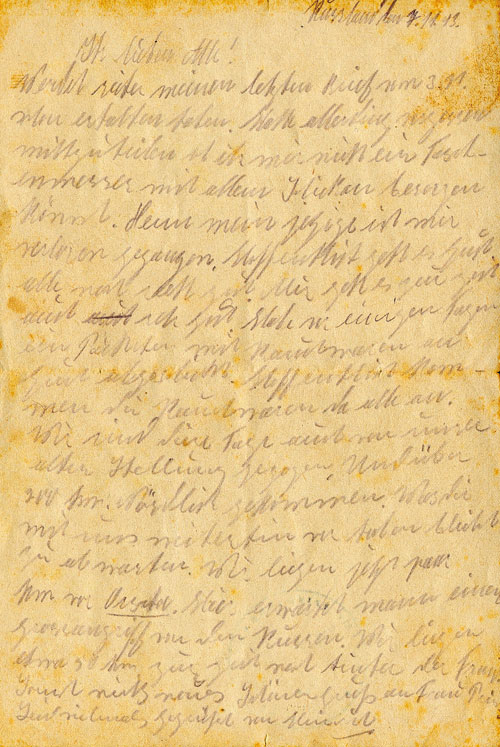 Russland den 7.11.43.
Ihr lieben Alle!
Werdet sicher meinen letzten Brief vom 3.11.
schon erhalten haben. Habe allerdings vergessen
mitzuteilen ob ihr mir nicht ein Tasch-
enmesser mit allem besorgen
könnt. Denn mein jetzige ist mir
verloren gegangen. Hoffentlich geht es Euch
alle noch recht gut. Mir geht es zur Zeit
auch ich gut. Habe vor einigen Tagen
ein Päckchen mit Rauchwaren an
Euch abgeschickt. Hoffentlich kom-
men die Rauchwaren da alle an.
Wir sind diese Tage auch von unser
alten Stellung gezogen Und über
200 km. Nördlich gekommen. Was die
mit uns weiterhin vor haben bleibt
zu ab warten. Wir liegen jetzt paar
km vor Hier erwartet mann einen
grossangriff von den Russen. Wir liegen
etwa 30 km zur zeit noch hinter der Front
Sonst nichts neues
Seid nochmals gegrüßt von